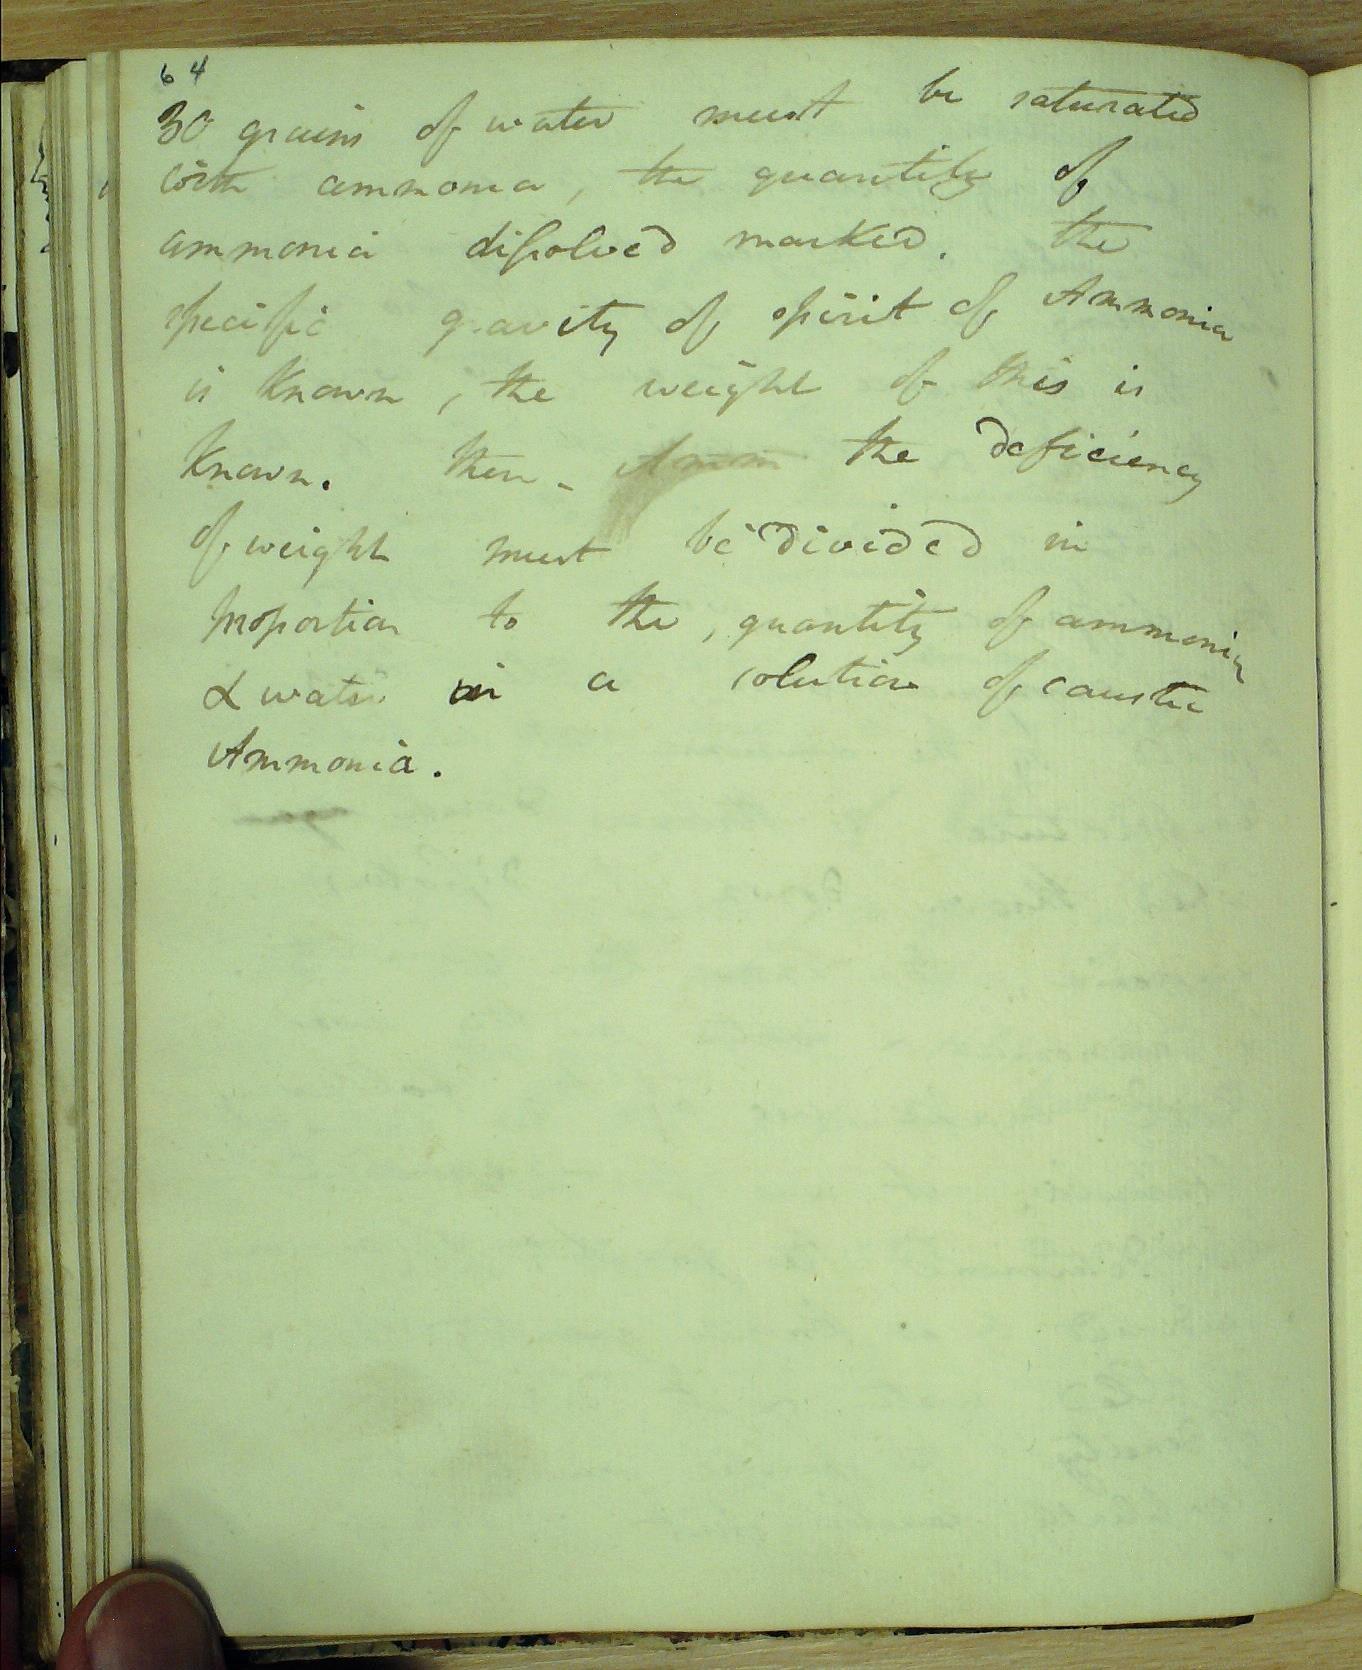 64
30 grains of water must be saturated
with ammonia, the quantity of
ammonia dissolved marked. the
specific gravity of spirit of Ammonia
is known, the weight of this is
known. then - Amm the deficiency
of weight must be divided in
proportion to the, quantity of ammonia
& water in a solution of caustic
Ammonia.